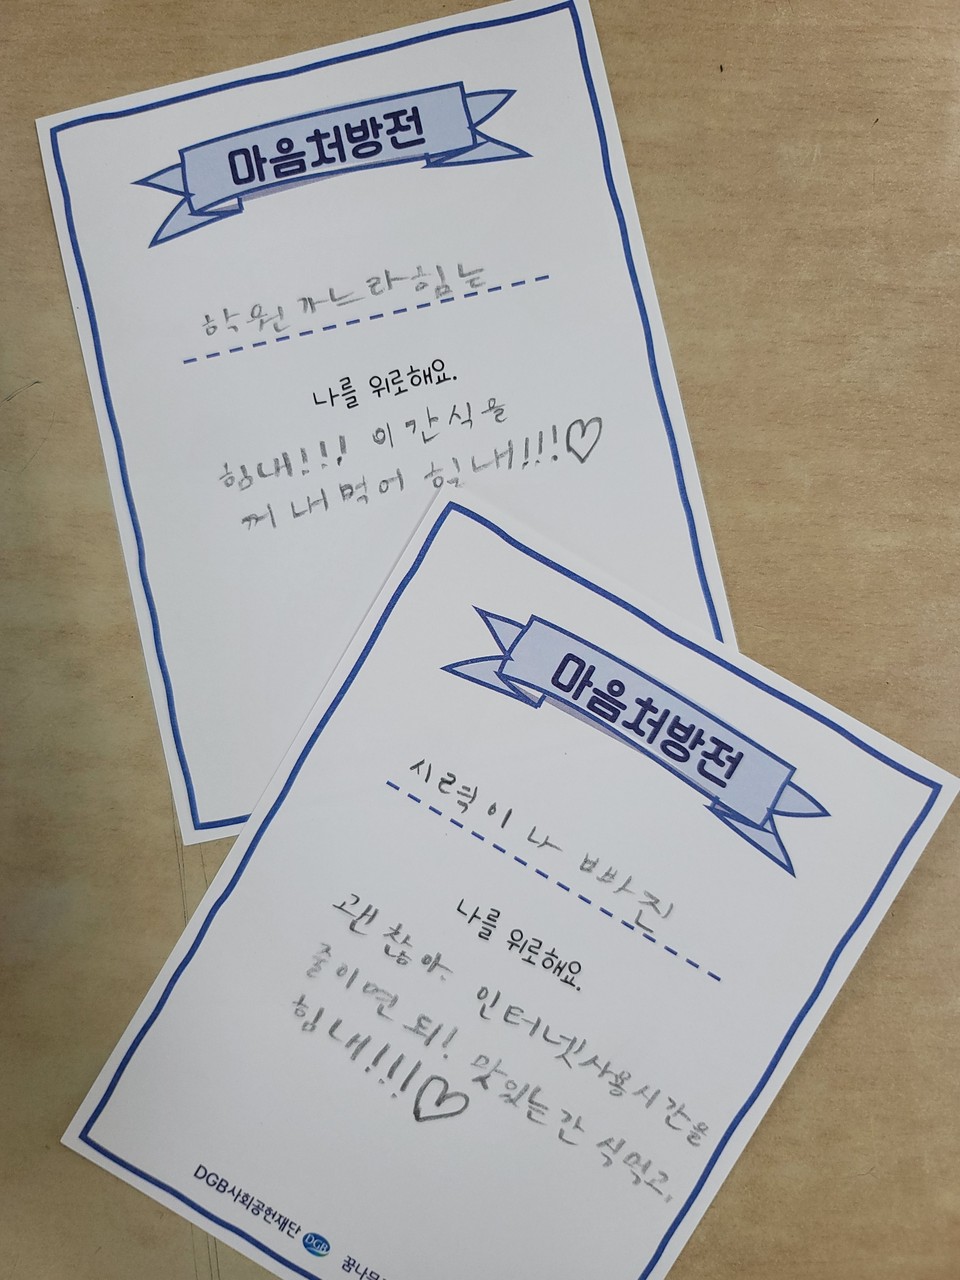 마음처방전
학원 가느라 힘든
나를 위로해요.
힘내!!! 이 간식을
꺼내먹어 힘내!!!♡
마음처방전
시력이 나빠진
나를 위로해요.
괜찮아. 인터넷사용시간을
줄이면 되! 맛있는간식먹고,
힘내!!!♡
DGB사회공헌재단 DGB 꿈나무